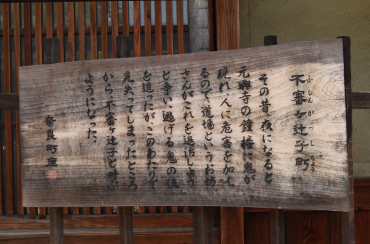 不審ヶ辻子町
ふしんがつじちょう
その昔、夜になると
元興寺の鐘楼に鬼が
現れ人に危害を加え
るので、道場というお坊
さんがこれを退治しよう
と争い、逃げる鬼の後
を追ったがこのあたりで
見失ってしまったところ
から不審ヶ辻子と呼ぶ
ようになった。
奈良町座